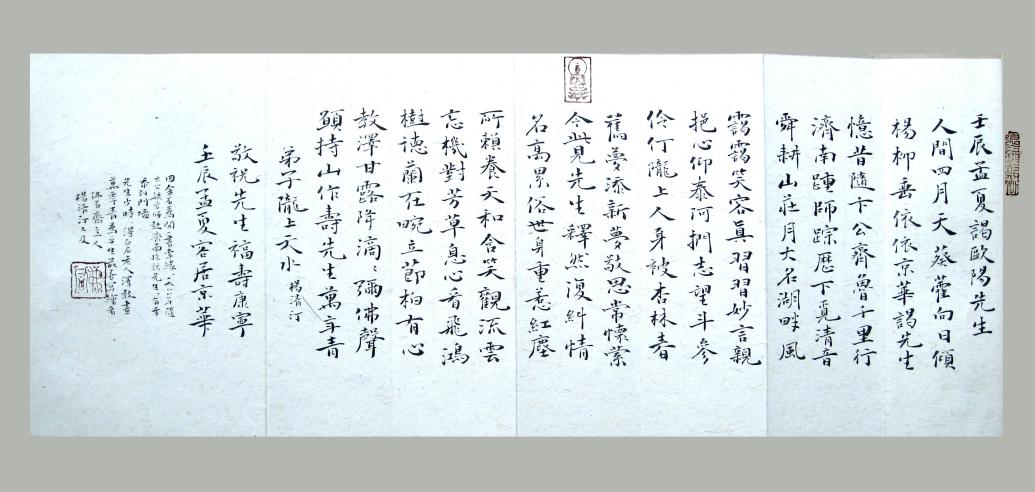 壬辰孟夏謁歐陽先生
人間四月天葵藿向日傾
楊柳垂依依京華謁先生
憶昔隨卞公齊魯千里行
濟南踵師踪歷下覓清音
舜耕山莊月大名湖畔風
靄靄笑容真習習妙言親
挹心仰泰河捫志望斗參
伶仃隴上人身被杏林春
舊夢添新夢敬思常懷縈
今此見先生釋然復糾情
名高累俗世身重惹紅塵
所賴養天和含笑觀流雲
忘機對芳草息心看飛鴻
樹德蘭在畹立節柏有心
教澤甘露降滴滴彌佛聲
願持山作壽先生萬年青
弟子隴上天水楊清汀
敬祝先生福壽康寧
壬辰孟夏客居京華